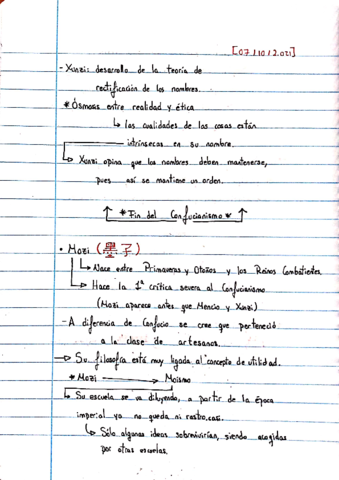 [07/10/2021]
- Xunzi: desarrollo de la teoría de
rectificación de los nombres.
* Ósmosis entre realidad y ética
↳ las cualidades de las cosas están
intrínsecas en su nombre.
↳ Xunzi opina que los nombres deben mantenerse,
pues así se mantiene un orden.
↑ * Fin del Confucianismo * ↑
• Mozi (墨子)
↳ Nace entre Primaveras y Otoños y los Reinos Combatientes.
↳ Hace la 1ª crítica severa al Confucianismo
(Mozi aparece antes que Mencio y Xunzi)
- A diferencia de Confucio se cree que perteneció
a la clase de artesanos.
→ Su filosofía está muy ligada al concepto de utilidad.
* Mozi → Moismo
↳ Su escuela se va diluyendo, a partir de la época
imperial ya no queda ni rastro, casi.
↳ Sólo algunas ideas sobrevivirían, siendo acogidas
por otras escuelas.